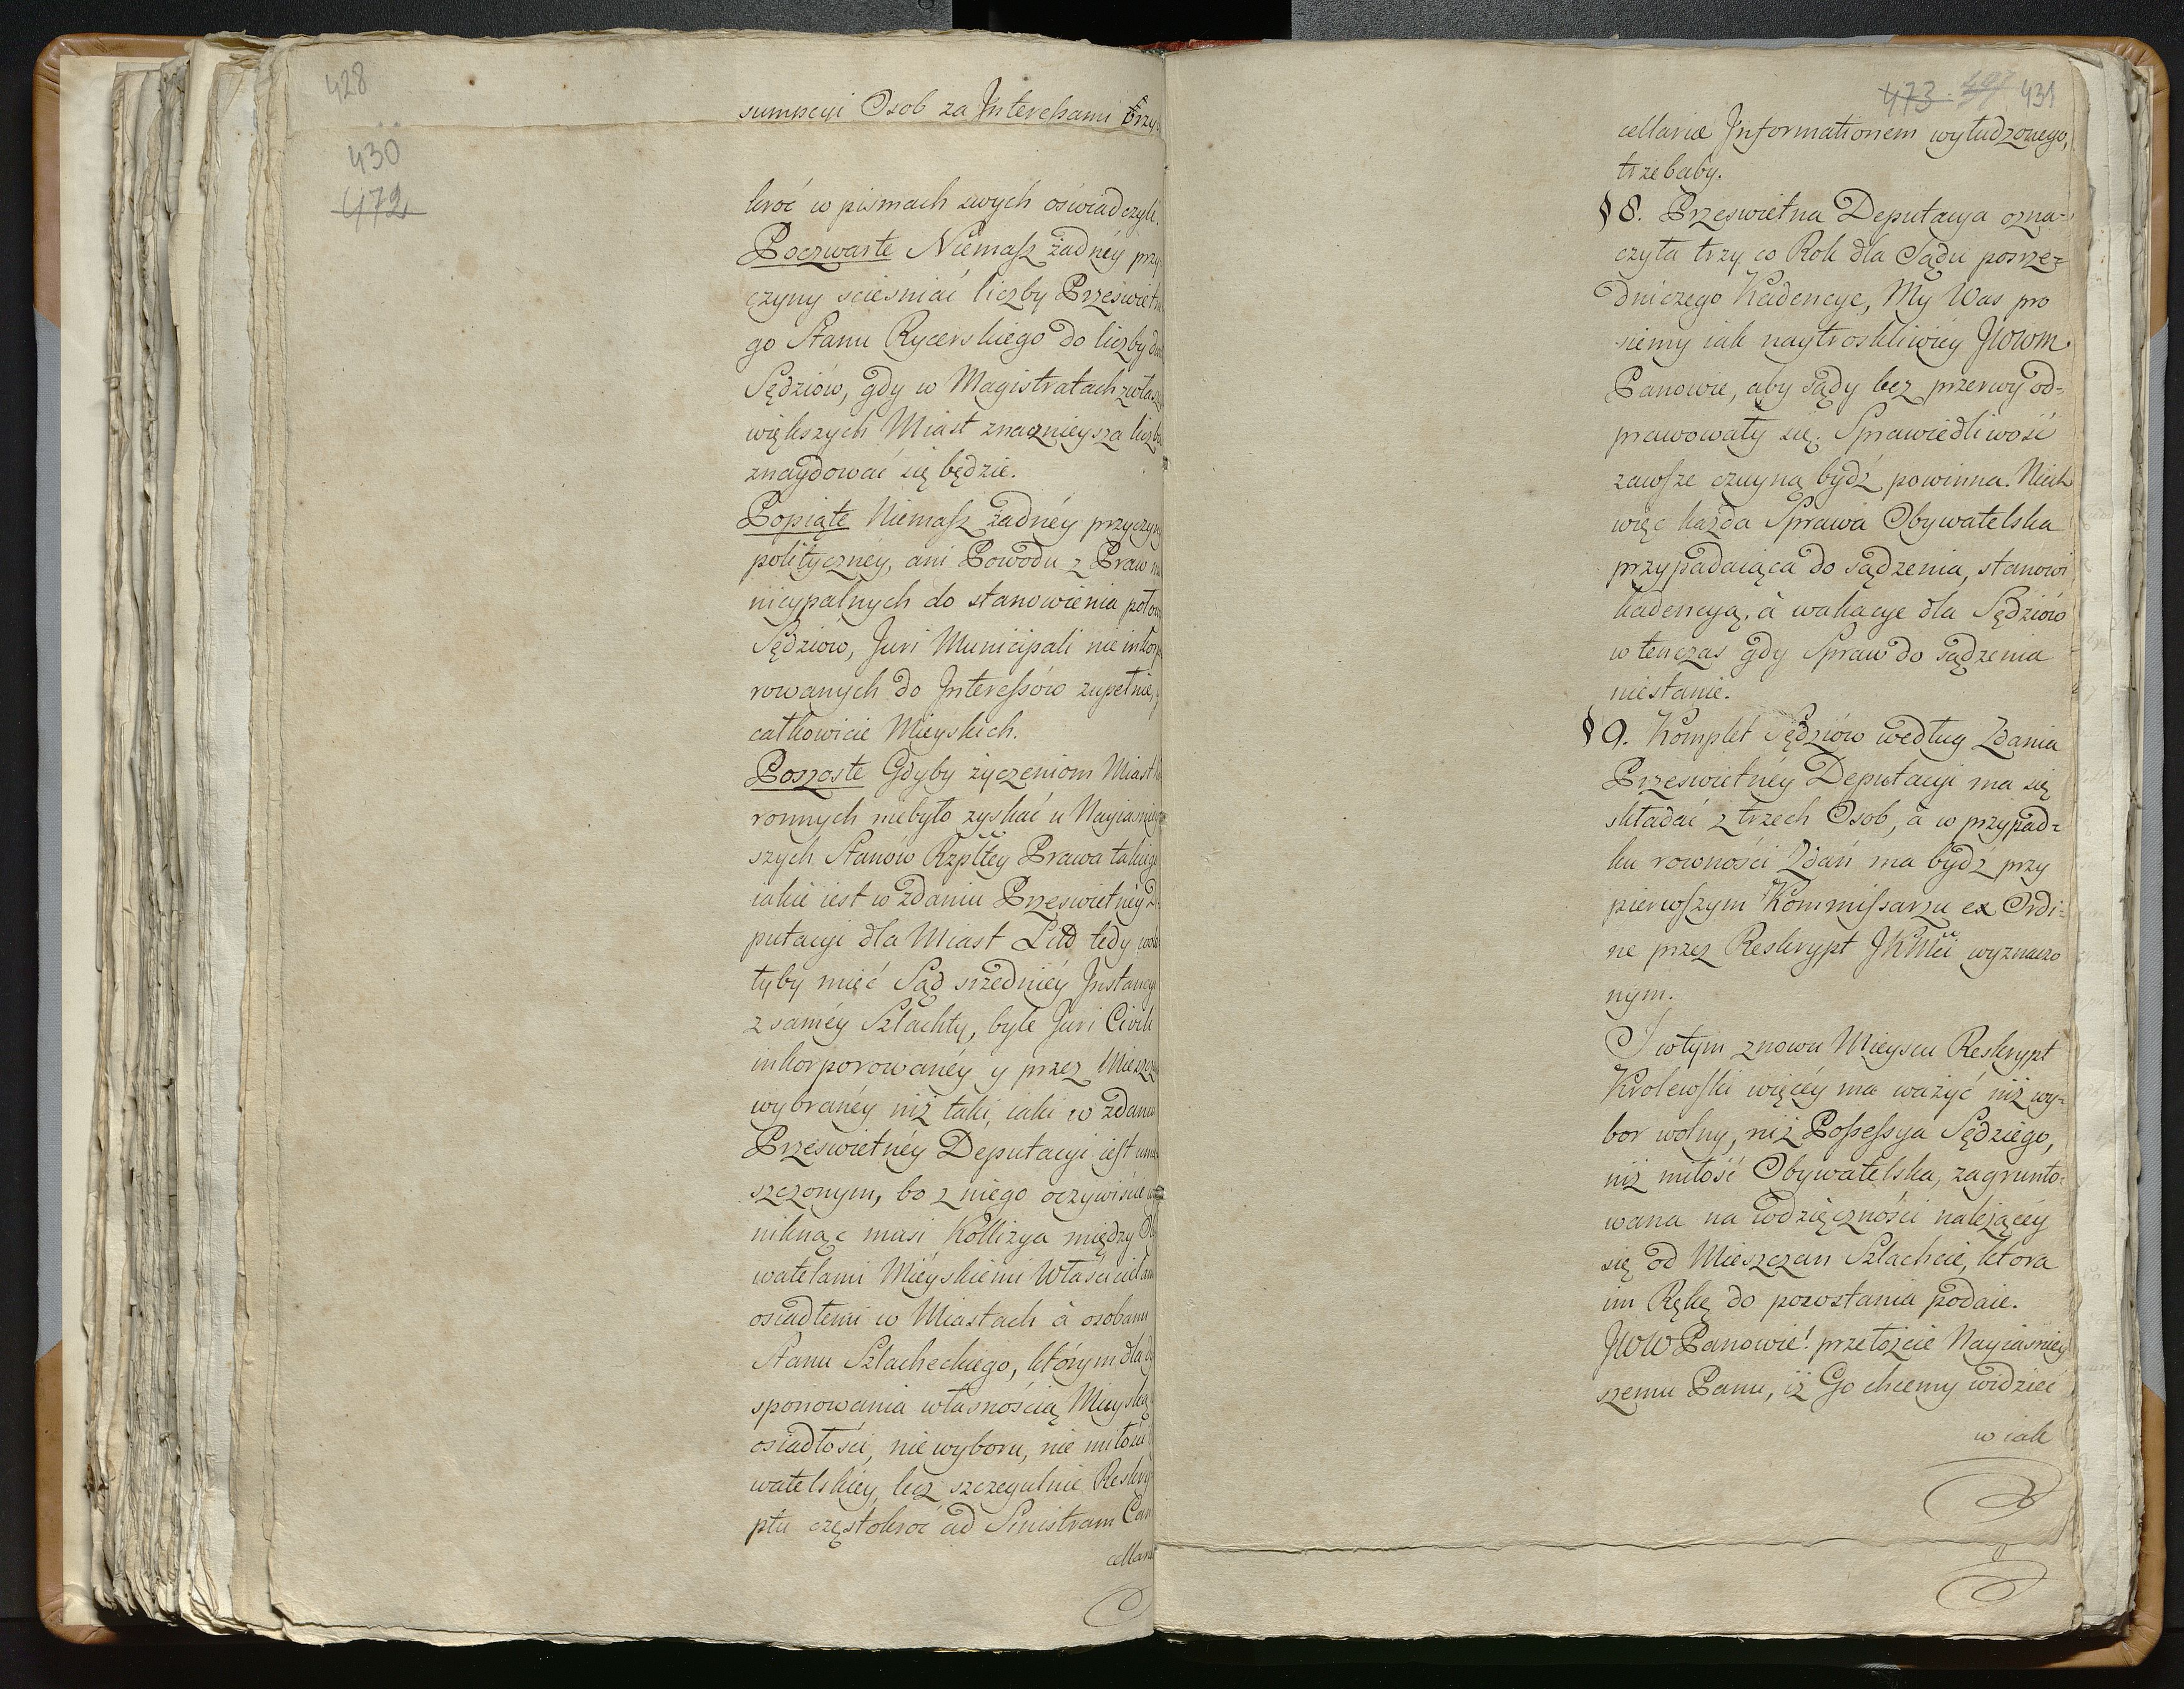 428
sumpcyi Osob za Interessami trzy
430
472
kroć w pismach swych oświadczyli.
Poczwarte Niemasz żadnéy przy-
czyny scieśniać liczby Prześwietne
go Stanu Rycerskiego do liczby
Sędziów, gdy w Magistratach zwłasz
większych Miast znacznieysza liczba
znaydować się będzie.
Popiąte Niemasz żadnéy przyczyny
politycznéy, ani Powodu z Praw mu
nicypalnych do stanowienia połow
Sędziow, Juri Municipali nie inkorpo
rowanych do Interessów zupełnie, y
całkowicie Mieyskich.
Poszoste Gdyby życzeniom Miast Ko
ronnych niebyło zyskać u Nayiaśniey
szych Stanów Rzpltey Prawa takiego
iakie iest w zdaniu Prześwietnéy De
putacyi dla Miast Litt. tedy wola
łyby mięć Sąd srzedniéy Instancyi
z saméy Szlachty, byle Juri Civili
inkorporowanéy y przez Mieszczan
wybranéy niż taki, iaki w zdaniu
Prześwietnéy Deputacyi iest umie
szczonym, bo z niego oczywiście wy
niknąć musi Kollizya między Oby
watelami Mieyskiemi Właścicielami
osiadłemi w Miastach à osobami
Stanu Szlacheckiego, którym dla dy
sponowania własnością Mieyską
osiadłości, nie wyboru, nie miłości
watelskiey, lecz szczegulnie Reskry
ptu częstokroć ad Sinistram Can
cellariæ
473 431
cellariæ Informationem wyłudzonego,
trzebaby.
§ 8. Prześwietna Deputacya ozna-
czyła trzy co Rok dla Sądu posrze-
dniczego Kadencye, My Was pro
siemy iak naytroskliwiéy JWWm
Panowie, aby sądy bez przerwy od-
prawowały się. Sprawiedliwość
zawsze czuyną bydź powinna. Niech
więc każda Sprawa Obywatelska
przypadaiąca do sądzenia, stanowi
kadencyą, à wakacye dla Sędziów
w tenczas gdy Spraw do sądzenia
niestanie.
§ 9. Komplet Sędziów według Zdania
Prześwietnéy Deputacyi ma się
składać z trzech Osob, à w przypad-
ku rowności Zdań ma bydź przy
pierwszym Kommissarzu ex Ordi-
ne przez Reskrypt JKMci wyznaczo
nym.
I w tym znowu Mieyscu Reskrypt
Krolewski więcéy ma ważyć niż wy-
bor wolny, niż Possessya Sędziego,
niż miłość Obywatelska, zagrunto-
wana na wdzięczności należącéy
się od Mieszczan Szlachcie, ktora
im Rękę do powstania podaie.
JWW Panowie! przełożcie Nayiaśniey
szemu Panu, iż Go chcemy widzieć
w iak